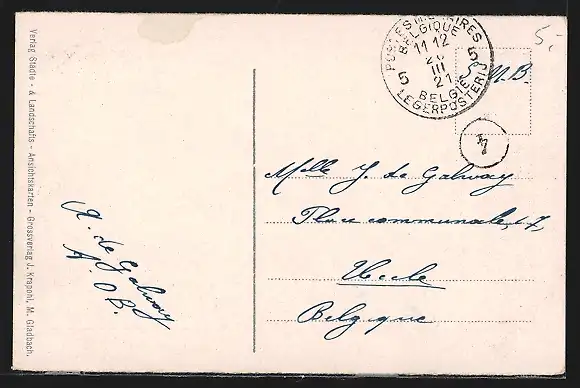 5.-
POSTES MILITAIRES
BELGIQUE
11 12
26
III
21
5 5
BELGIE
LEGERPOSTERIJ
S. M. B.
Melle J. de Galway
Place communale, 17
Uccle
Belgique
A. de Galway
A. O B.
Verlag Städte- & Landschafts - Ansichtskarten - Grossverlag J. Krapohl, M. Gladbach.